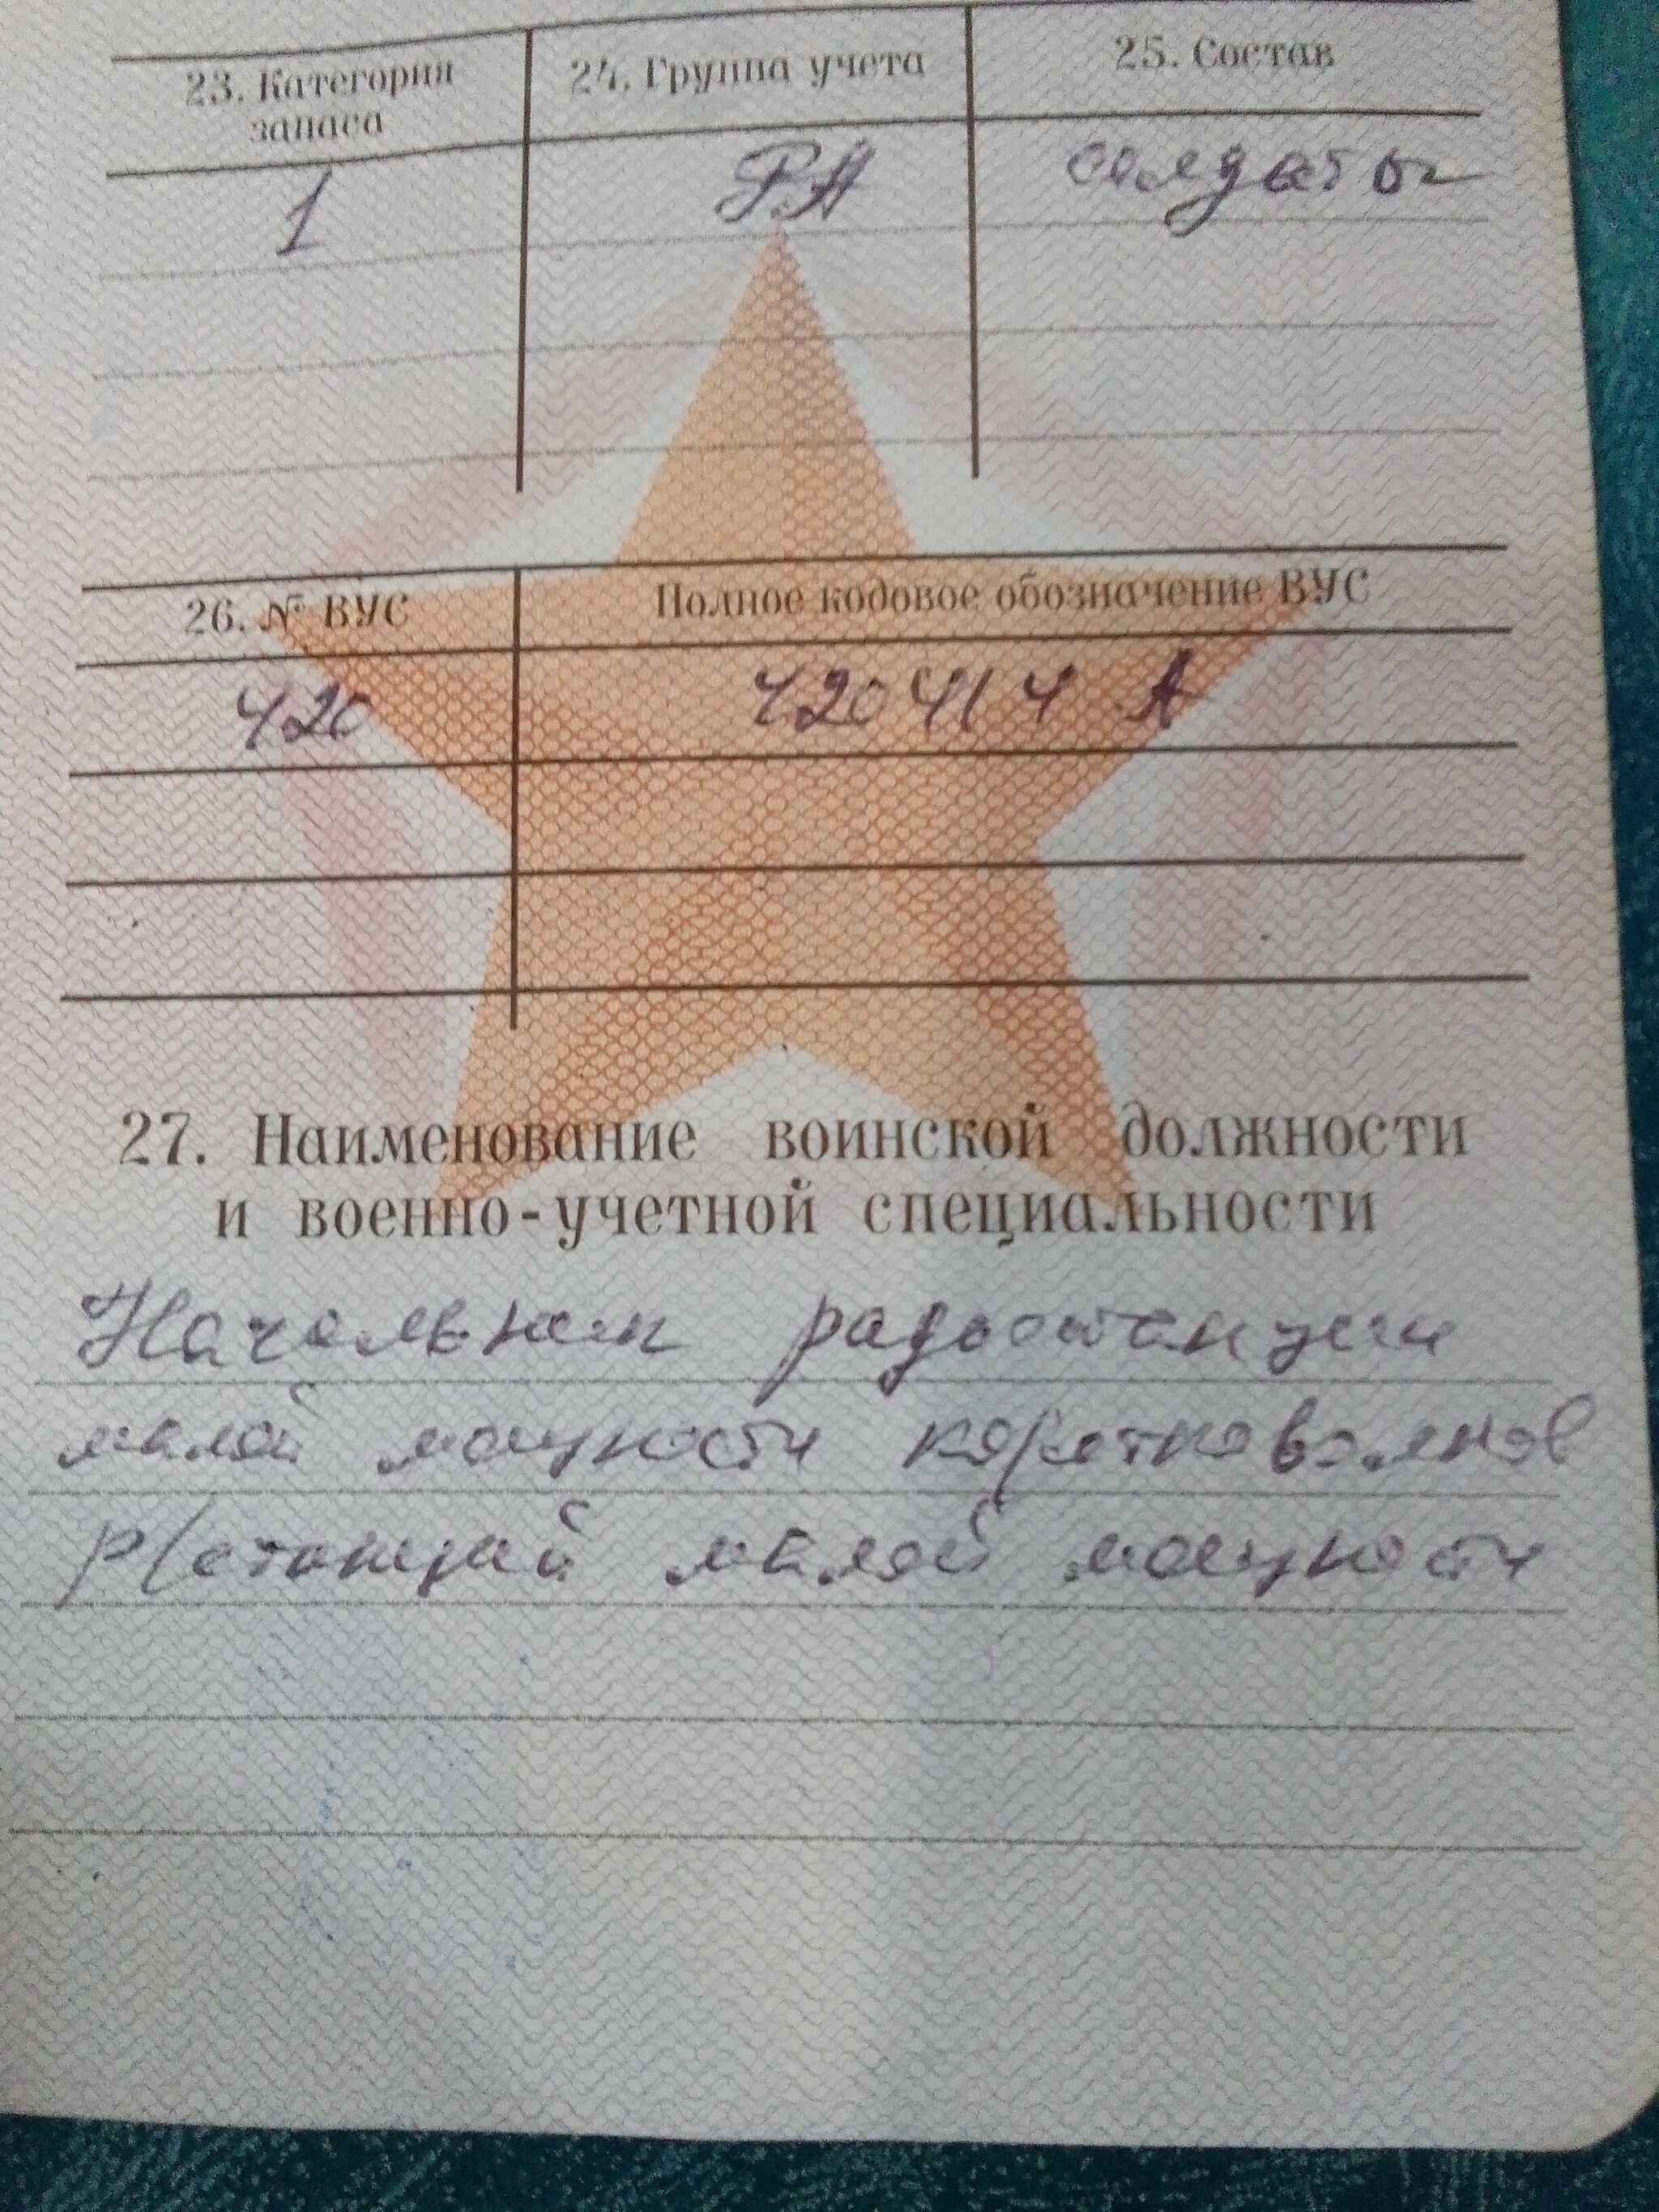 23. Категория запаса
24. Группа учета
25. Состав
1
РА
солдаты
26. № ВУС
Полное кодовое обозначение ВУС
420
420414 А
27. Наименование воинской должности
и военно-учетной специальности
Начальник радиостанции
малой мощности коротковолнов
р/станций малой мощности